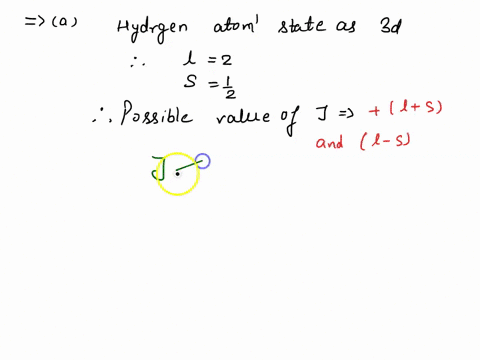 => (a) Hydrgen atom' state as 3d
∴ l = 2
S = 1/2
∴ Possible value of J => + (l+S)
and (l-S)
J